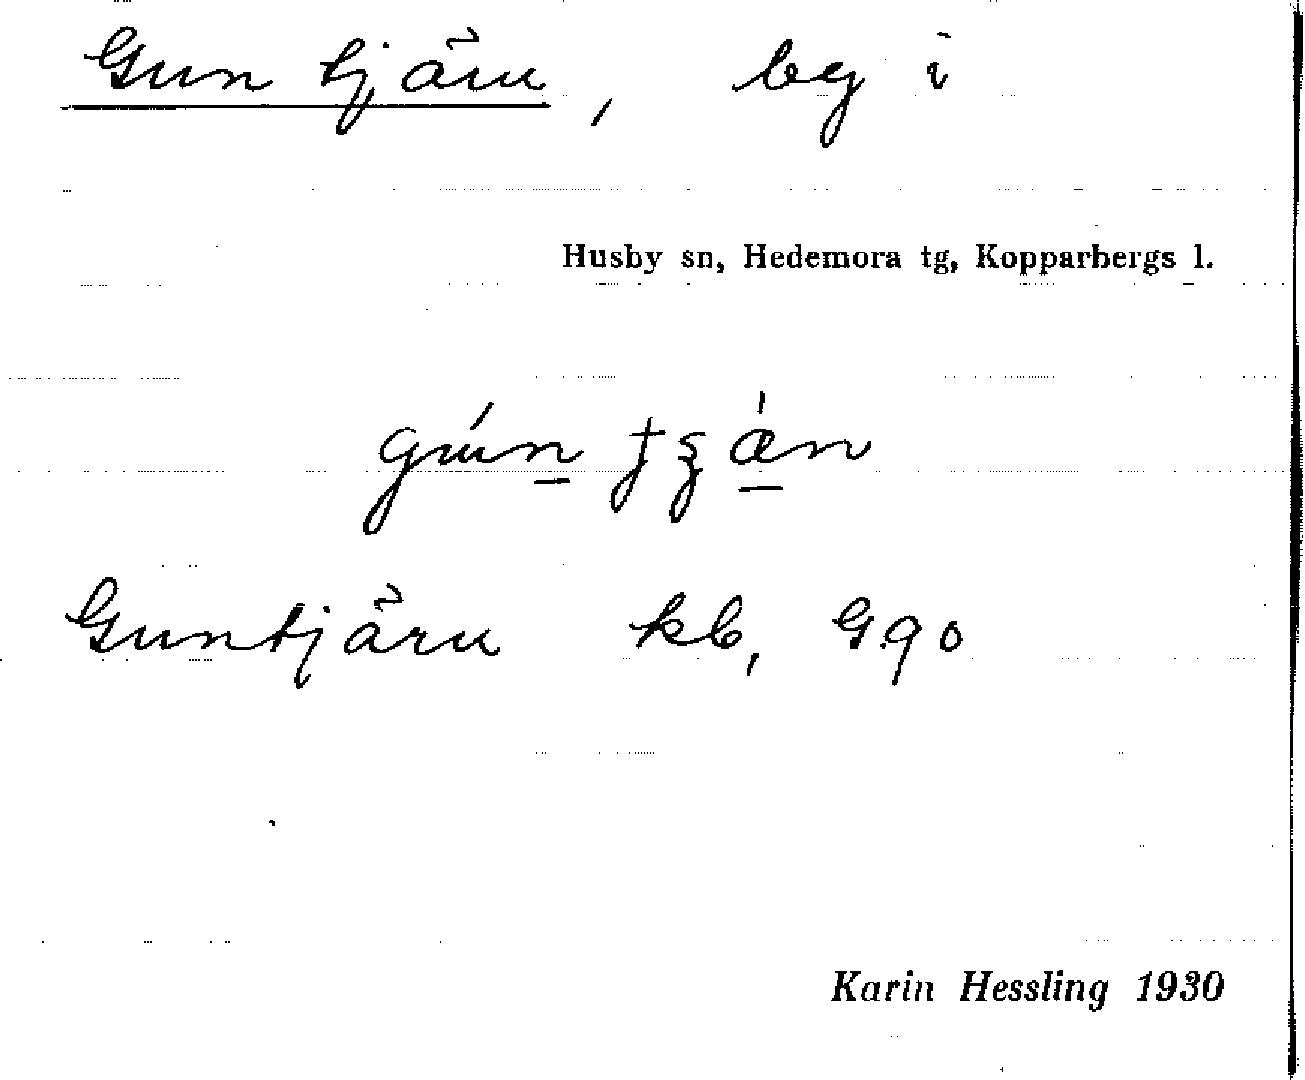 Guntjärn, by i
Husby sn, Hedemora tg, Kopparbergs l.
Guntjärn kb, G.90
Karin Hessling 1930